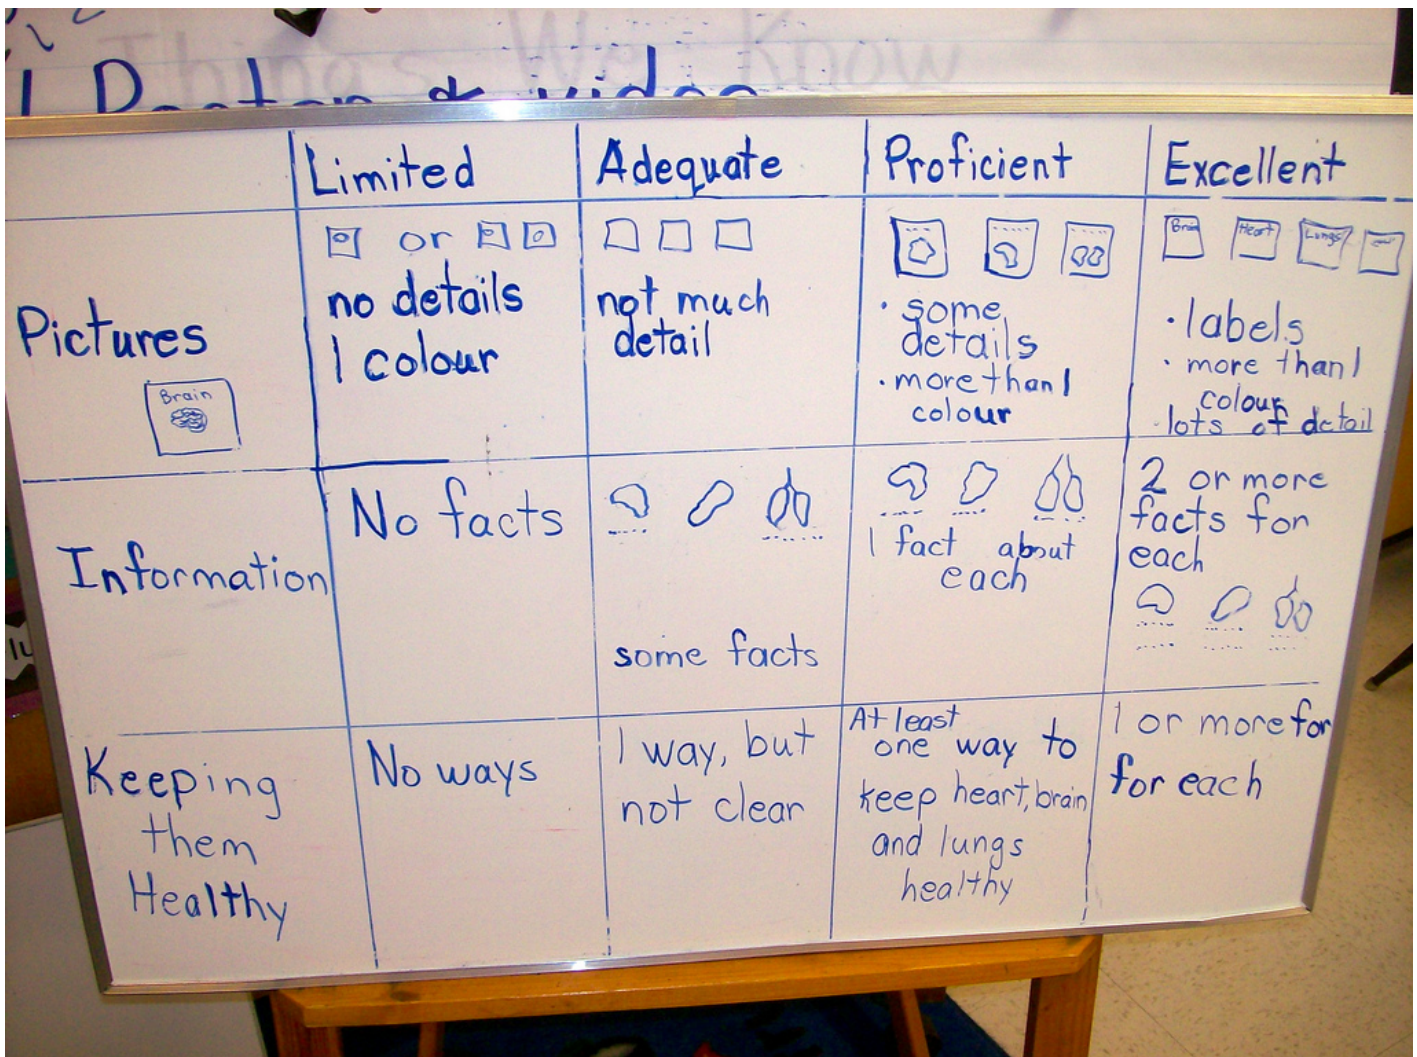 Things We Know
Limited Adequate Proficient Excellent
Pictures
Brain
or
no details
1 colour
not much
detail
· some
details
· more than 1
colour
Brain Heart Lungs
· labels
· more than 1
colour
· lots of detail
Information
No facts
some facts
1 fact about
each
2 or more
facts for
each
Keeping
them
Healthy
No ways
1 way, but
not clear
At least
one way to
keep heart, brain
and lungs
healthy
1 or more for
for each